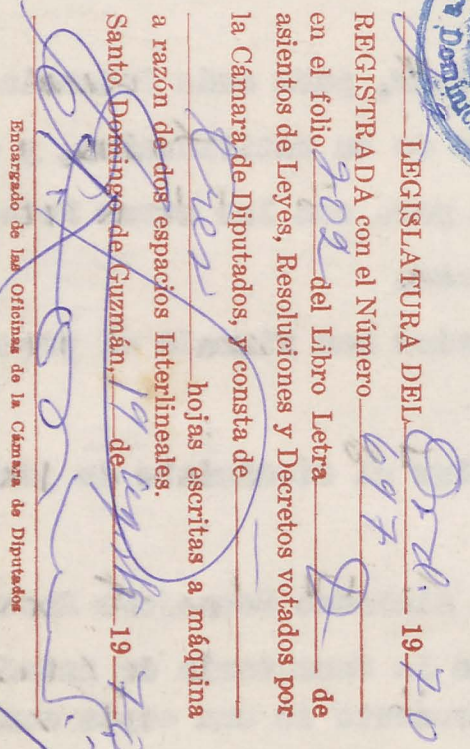 LEGISLATURA DEL Ord. 1970
REGISTRADA con el Número 697
en el folio 202 del Libro Letra D de
asientos de Leyes, Resoluciones y Decretos votados por
la Cámara de Diputados, consta de
tres hojas escritas a máquina
a razón de dos espacios interlineales.
Santo Domingo de Guzmán, 19 de agosto 1970
Encargado de las Oficinas de la Cámara de Diputados